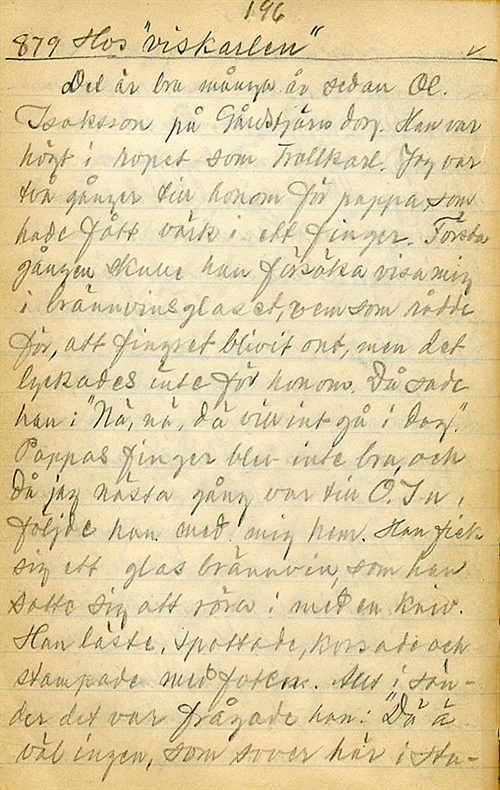 196
879 Hos "viskarlen"
Det är bra många år sedan Ol.
Isaksson på Gårdstjärn dog. Han var
högt i ropet som trollkarl. Jag var
två gånger till honom för pappa, som
hade fått värk i ett finger. Första
gången skulle han försöka visa mig
i brännvinsglaset, vem som rådde
för, att fingret blivit ont, men det
lyckades inte för honom. Då sade
han: "Nä, nä, dä vill int gå i dag".
Pappas finger blev inte bra, och
då jag nästa gång var till O. I-n,
följde han med mig hem. Han fick
sig ett glas brännvin, som han
satte sig att röra i med en kniv.
Han läste, spottade, korsade och
stampade med foten. Allt i sän-
der det var frågade han: "Dä ä
väl ingen, som sover här i stu-